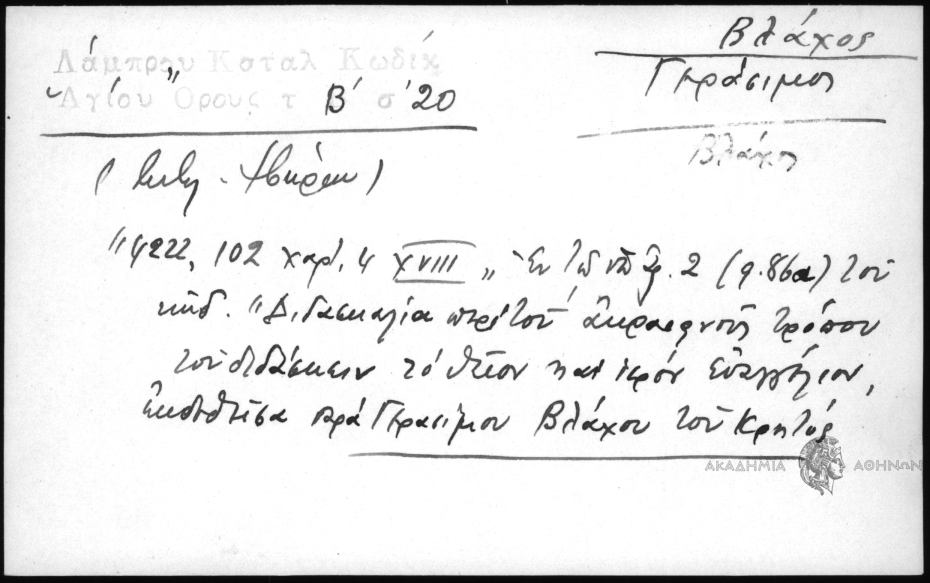 Λάμπρου Καταλ Κωδίκ
"Αγίου Ορους" τ Β΄ σ΄ 20
Βλάχος
Γεράσιμος
Βλάχος
(Μονή Ἰβήρων)
"4222, 102 χαρτ. 4 XVIII „ Ἐν τῷ ὑπ' ἀρ. 2 (φ. 86α) τοῦ
κώδ. "Διδασκαλία περὶ τοῦ ἀκραιφνοῦς τρόπου
τοῦ διδάσκειν τὸ θεῖον καὶ ἱερὸν Εὐαγγέλιον,
ἐκδοθεῖσα παρὰ Γερασίμου Βλάχου τοῦ Κρητός
ΑΚΑΔΗΜΙΑ ΑΘΗΝΩΝ